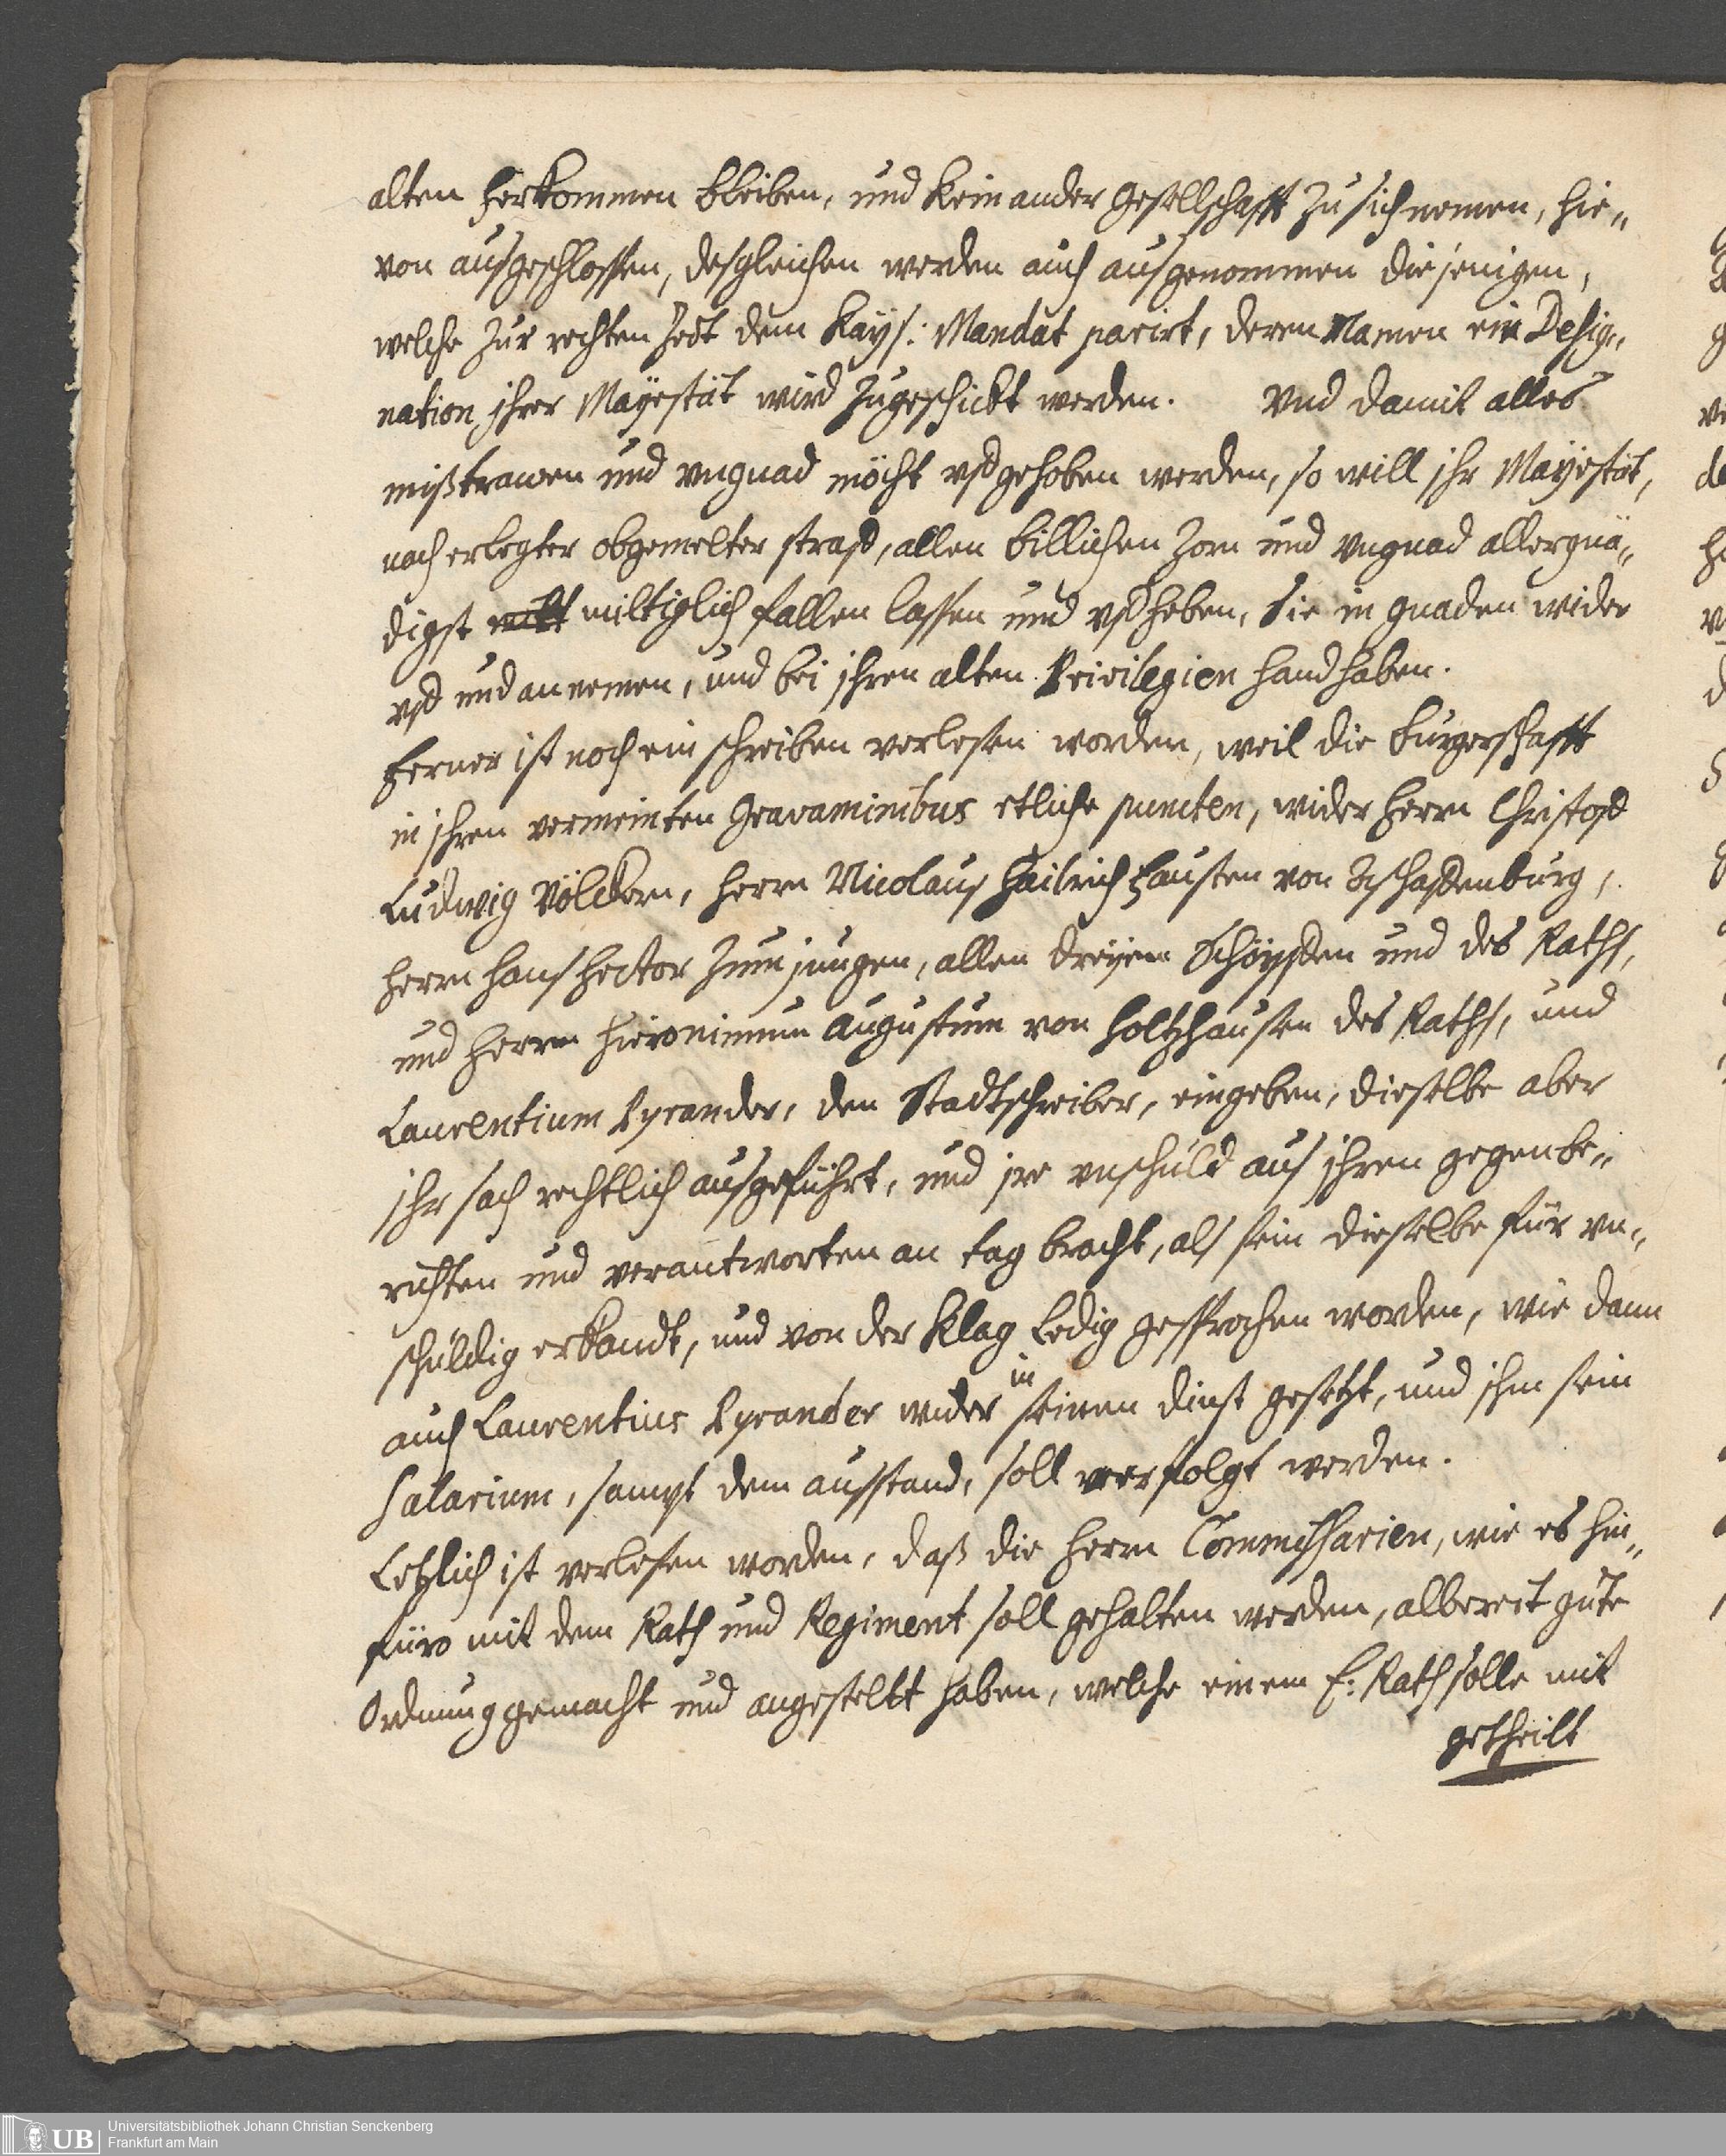 alten herkommen bleiben, und kein ander gesellschafft zu sich nemen, hie„
von ausgeschlossen, desgleichen werden auch ausgenommen diejenigen,
welche zur rechten Zeit dem Kays: Mandat parirt, deren Namen ein Desig„
nation, ihrer Mayestät wird zugeschickt werden. Vnd damit alles
mißtrawen und vngnad möcht vffgehoben werden, so will ihr Mayestät,
nach erlegter obgemelter straff, allen billichen Zorn und vngnad allergnä„
digst miltiglich fallen lassen und vffheben, Sie in gnaden wider
vff und annemen, und bei ihren alten Privilegien handhaben.
Ferner ist noch ein schreiben verlesen worden, weil die burgerschafft
in ihren vermeinten Gravaminibus etliche puncten, wider herrn Christoff
Ludwig Völckern, herrn Nicolaus Hailrich Fausten von Aschaffenburg,
herrn Hans Hector zum jungen, allen dreyen Schöpffen und des Raths,
und herrn Hieronimum Augustum von Holtzhausen des Raths, und
Laurentium Pyrander, den Stadtschreiber, eingeben, dieselbe aber
ihr sach rechtlich ausgeführt, und ire vnschuld aus ihren gegenbe„
richten und verantworten an tag bracht, als sein dieselbe für vn„
schuldig erkandt, und von der Klag ledig gesprochen worden, wie dann
auch Laurentius Pyrander wider in seinen dinst gesetzt, und ihm sein
Salarium, sampt dem ausstand, soll verfolgt werden.
Letzlich ist verlesen worden, daß die herrn Commissarien, wie es hin„
füro mit dem Rath und Regiment soll gehalten werden, albereit gute
Ordnung gemacht und angestellt haben, welche einem E: Rath solle mit
getheilt
Universitätsbibliothek Johann Christian Senckenberg
Frankfurt am Main
UB